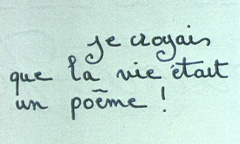 je croyais
que la vie était
un poème !